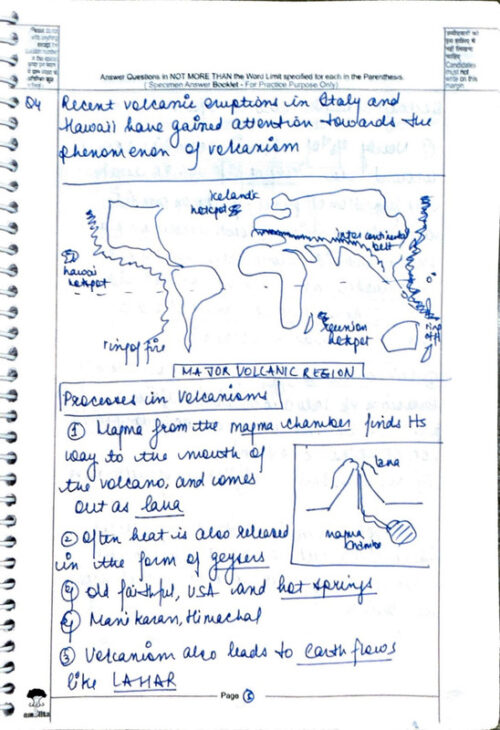 Answer Questions in NOT MORE THAN the Word Limit specified for each in the Parenthesis.
( Specimen Answer Booklet - For Practice Purpose Only)
Candidates
must not
write on this
margin
Q4
Recent volcanic eruptions in Italy and
Hawaii have gained attention towards the
phenomenon of volcanism
Icelandic
hotspot
inter continental
belt
hawai
hotspot
ring of fire
reunion
hotspot
MAJOR VOLCANIC REGION
Processes in Volcanisms
① Magma from the magma chamber finds its
way to the mouth of
the volcano, and comes
out as lava
lava
magma
chamber
② Often heat is also released
in the form of geysers
eg old faithful, USA and hot springs
eg Manikaran, Himachal
③ Volcanism also leads to earth flows
like LAHAR
Page